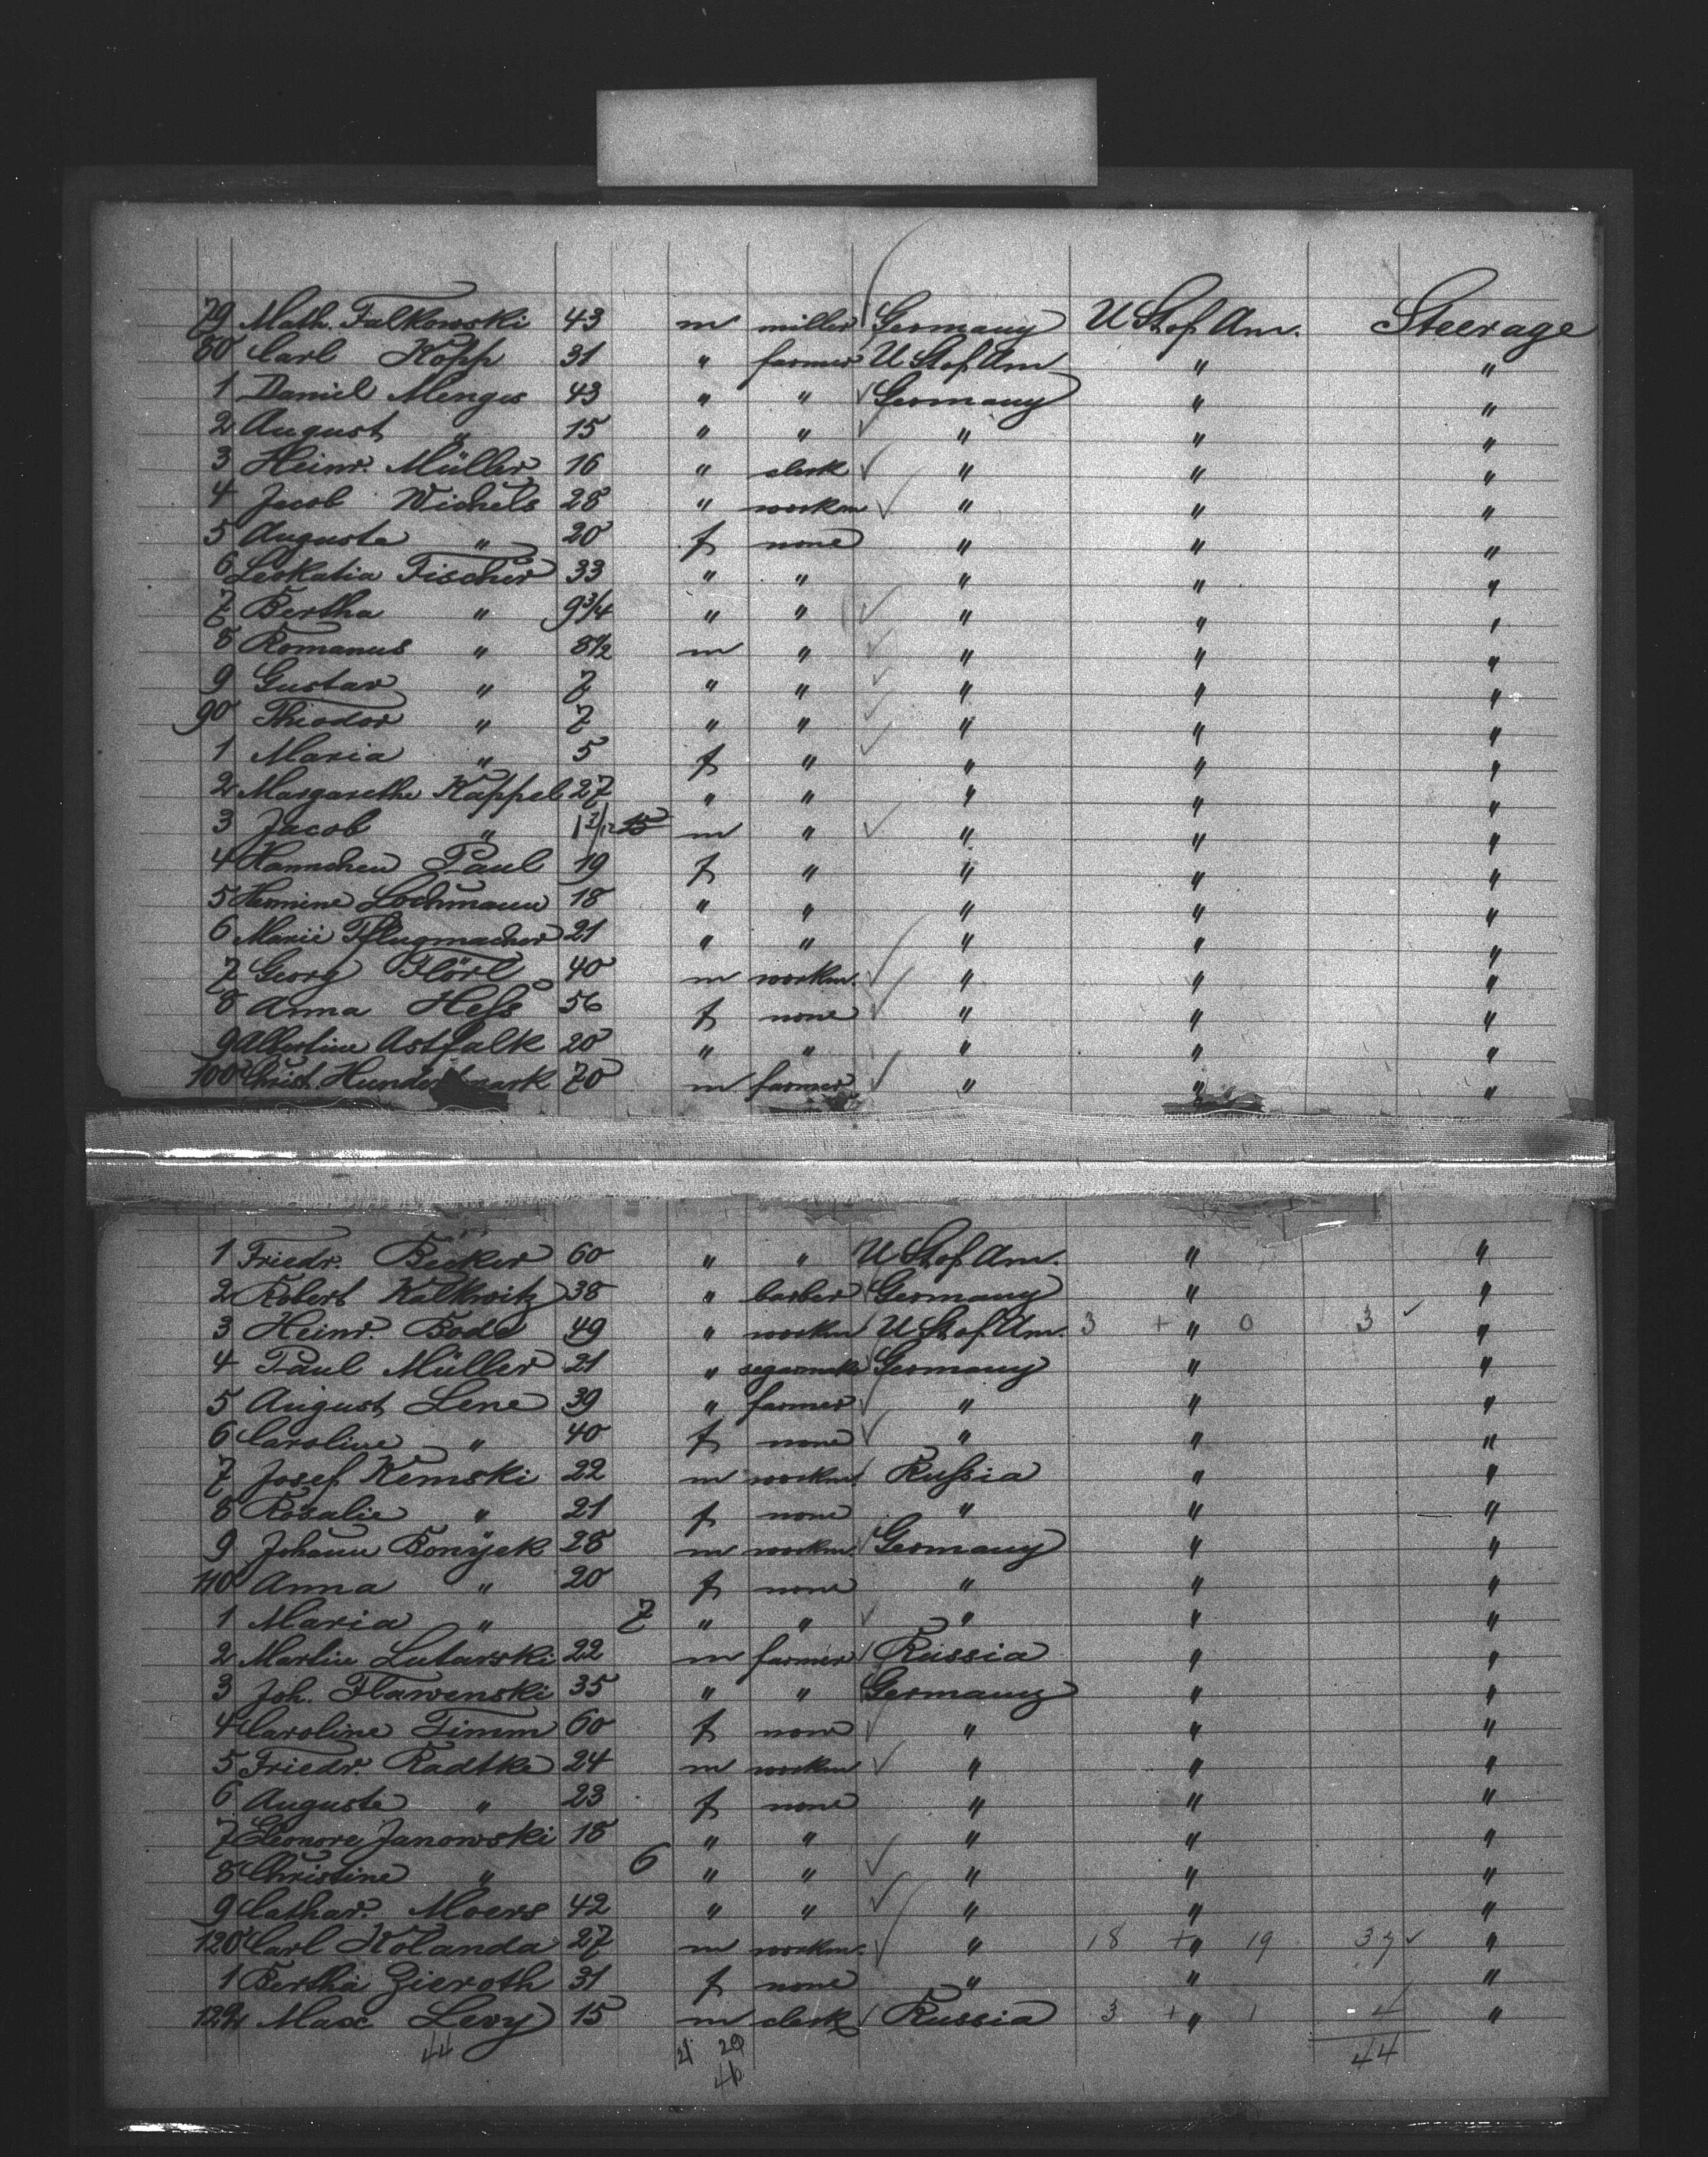 79 Math. Falkowski 43 m miller Germany U St of Am. Steerage
80 Carl Kopp 31 " farmer U St of Am " "
1 Daniel Menges 43 " " Germany " "
2 August " 15 " " " " "
3 Heinr. Müller 16 " clerk " " "
4 Jacob Wichels 28 " workm " " "
5 Auguste " 20 f none " " "
6 Leokatia Fischer 33 " " " " "
7 Bertha " 9 3/4 " " " " "
8 Romanus " 8 1/2 m " " " "
9 Gustav " 7 " " " " "
90 Theodor " 7 " " " " "
1 Maria " 5 f " " " "
2 Margarethe Kappel 27 " " " " "
3 Jacob " m " " " "
4 Hannchen Paul 19 f " " " "
5 Hermine Lochmann 18 " " " " "
6 Marie Pflugmacher 21 " " " " "
7 Georg Flörl 40 m workm. " " "
8 Anna Heß 56 f none " " "
9 Albertine Astfalk 20 " " " " "
100 Christ. Hundertmark 70 m farmer " " "
1 Friedr. Becker 60 " " U St of Am. " "
2 Robert Kalkwitz 38 " barber Germany " "
3 Heinr. Bode 49 " workm U St of Am. 3 + " 0 3 "
4 Paul Müller 21 " segarmake Germany " "
5 August Lene 39 " farmer " " "
6 Caroline " 40 f none " " "
7 Josef Kemski 22 m workm Rußia " "
8 Rosalie " 21 f none " " "
9 Johann Bonÿek 28 m workm. Germany " "
110 Anna " 20 f none " " "
1 Maria " 7 " " " " "
2 Martin Lutarski 22 m farmer Russia " "
3 Joh. Flawenski 35 " " Germany " "
4 Caroline Timm 60 f none " " "
5 Friedr. Radtke 24 m workm " " "
6 Auguste " 23 f none " " "
7 Leonore Janowski 18 " " " " "
8 Christine " 6 " " " " "
9 Cathar. Moers 42 " " " " "
120 Carl Kolanda 27 m workm. " 18 + " 19 37 "
1 Bertha Zieroth 31 f none " " "
122 Max Levy 15 m clerk Russia 3 + " 1 4 "
44 44